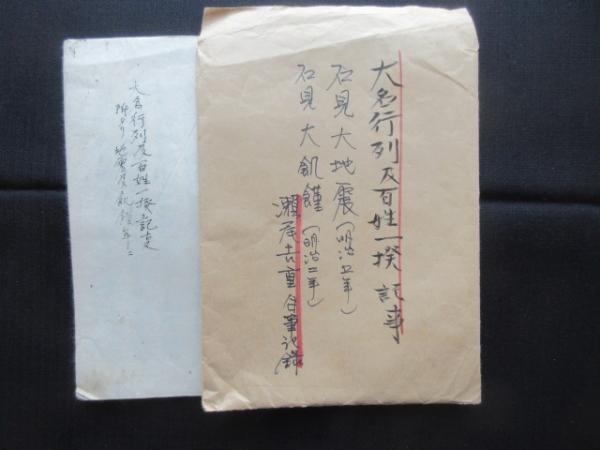 大名行列及百姓一揆記事
石見大地震(明治五年)
石見大飢饉(明治二年)
瀬尾吉重自筆記録
大名行列及百姓一揆記事
地震及飢饉